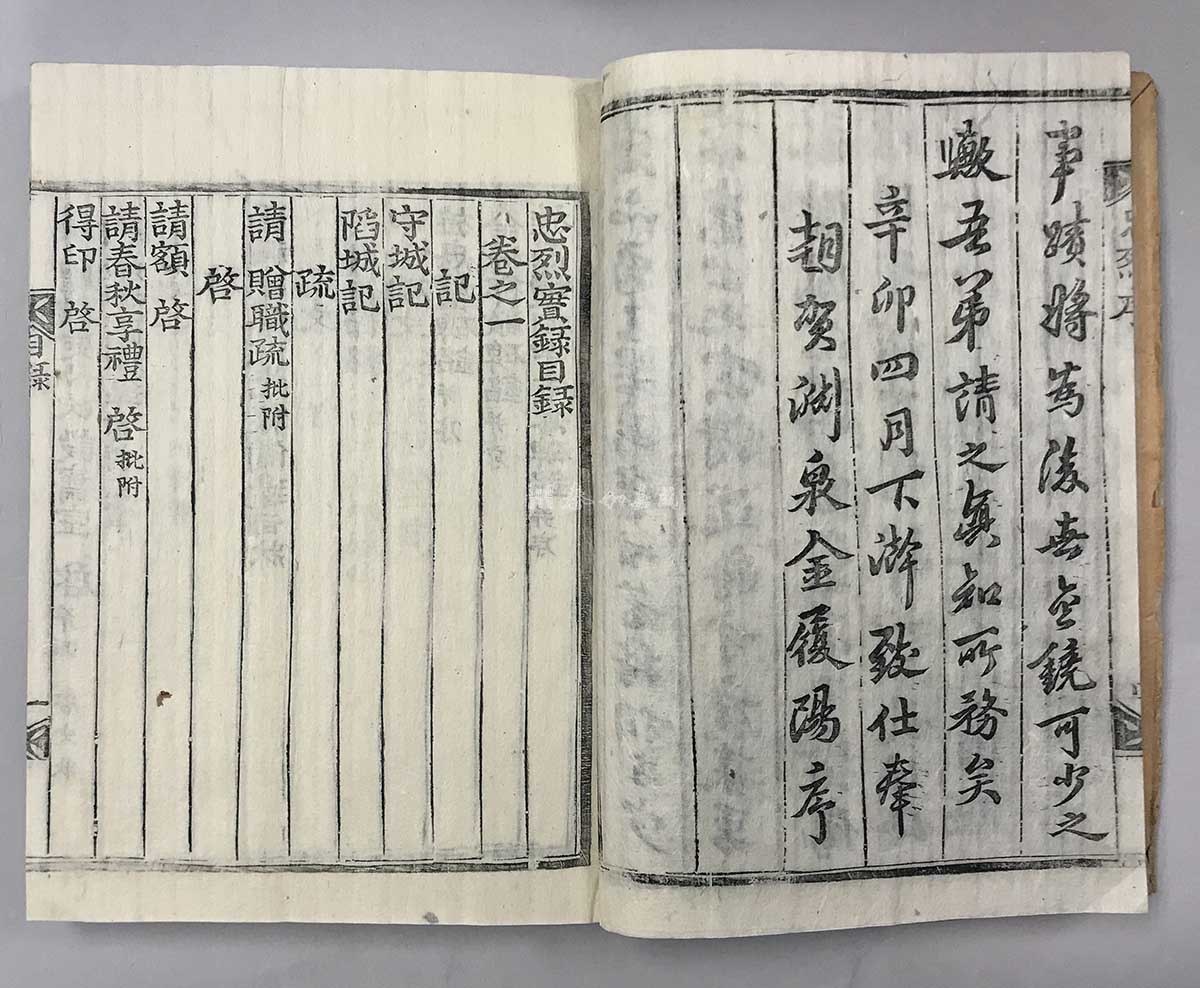 事蹟將爲後無無鏡可少之
轍吾弟請之眞知所務矣
辛卯四月下澣致仕奉
朝賀淵泉金履陽序
忠烈實録目録
卷之一
記
守城記
陷城記
疏
請 贈職疏 批附
啓
請額 啓
請春秋享禮 啓 批附
得印 啓
目録
一